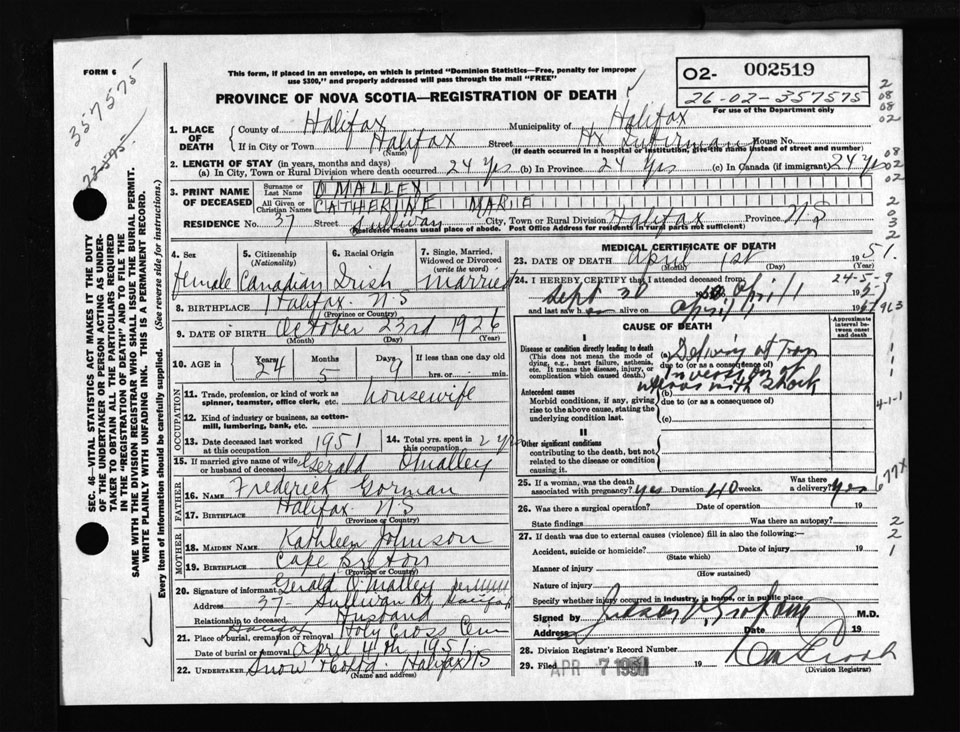 FORM 6
This form, if placed in an envelope, on which is printed "Dominion Statistics—Free, penalty for improper
use $300," and properly addressed will pass through the mail "FREE"
PROVINCE OF NOVA SCOTIA—REGISTRATION OF DEATH
O2- 002519
26-02-357575
For use of the Department only
357575
1. PLACE OF DEATH
County of Halifax Municipality of Halifax
If in City or Town Halifax Street Hx Infirmary House No.
(Name) (If death occurred in a hospital or institution, give the name instead of street and number)
2. LENGTH OF STAY (in years, months and days)
(a) In City, Town or Rural Division where death occurred 24 yrs (b) In Province 24 yrs (c) In Canada (if immigrant) 24 yrs
3. PRINT NAME OF DECEASED
Surname or Last Name OMALLEY
All Given or Christian Names CATHERINE MARIE
RESIDENCE No. 37 Street Sullivan City, Town or Rural Division Halifax Province NS
(Residence means usual place of abode. Post Office Address for residents in rural parts not sufficient)
4. Sex female
5. Citizenship (Nationality) Canadian
6. Racial Origin Irish
7. Single, Married, Widowed or Divorced (write the word) Married
8. BIRTHPLACE Halifax NS
(Province or Country)
9. DATE OF BIRTH October 23rd 1926
(Month) (Day) (Year)
10. AGE in Years 24 Months 5 Days 9 If less than one day old
hrs. or min.
OCCUPATION
11. Trade, profession, or kind of work as spinner, teamster, office clerk, etc. housewife
12. Kind of industry or business, as cotton-mill, lumbering, bank, etc.
13. Date deceased last worked at this occupation 1951
14. Total yrs. spent in this occupation 2 yrs
15. If married give name of wife or husband of deceased Gerald OMalley
FATHER
16. NAME Frederick Gorman
17. BIRTHPLACE Halifax NS
(Province or Country)
MOTHER
18. MAIDEN NAME Kathleen Johnson
19. BIRTHPLACE Cape Breton
(Province or Country)
20. Signature of informant Gerald O'Malley
Address 37 Sullivan St Halifax
Relationship to deceased Husband
21. Place of burial, cremation or removal Halifax Holy Cross Cem
Date of burial or removal April 4th 1951
22. UNDERTAKER Snow & Co Ltd. Halifax NS
(Name and address)
MEDICAL CERTIFICATE OF DEATH
23. DATE OF DEATH April 1st 1951
(Month) (Day)
24. I HEREBY CERTIFY that I attended deceased from
Sept 30 1950 April 1 195
and last saw h alive on April 1 195
CAUSE OF DEATH
Approximate interval between onset and death
I
Disease or condition directly leading to death
(This does not mean the mode of dying, e.g., heart failure, asthenia, etc. It means the disease, injury, or complication which caused death.)
(a)
due to (or as a consequence of)
Inversion of
uterus with shock
Antecedent causes
Morbid conditions, if any, giving rise to the above cause, stating the underlying condition last.
(b)
due to (or as a consequence of)
(c)
II
Other significant conditions
contributing to the death, but not related to the disease or condition causing it.
25. If a woman, was the death associated with pregnancy? yes Duration 40 weeks. Was there a delivery? yes
26. Was there a surgical operation? Date of operation 19
State findings Was there an autopsy?
27. If death was due to external causes (violence) fill in also the following:—
Accident, suicide or homicide? Date of injury 19
(State which)
Manner of injury
(How sustained)
Nature of injury
Specify whether injury occurred in industry, is home, or in public place
Signed by M.D.
Address Date 19
28. Division Registrar's Record Number
29. Filed APR 7 1951 19
(Division Registrar)
SEC. 46—VITAL STATISTICS ACT MAKES IT THE DUTY
OF THE UNDERTAKER OR PERSON ACTING AS UNDER-
TAKER TO OBTAIN ALL THE PARTICULARS REQUIRED
IN THE "REGISTRATION OF DEATH" AND TO FILE THE
SAME WITH THE DIVISION REGISTRAR WHO SHALL ISSUE THE BURIAL PERMIT.
WRITE PLAINLY WITH UNFADING INK. THIS IS A PERMANENT RECORD.
Every item of information should be carefully supplied. (See reverse side for instructions.)
24-5-9
4-1-1
677X